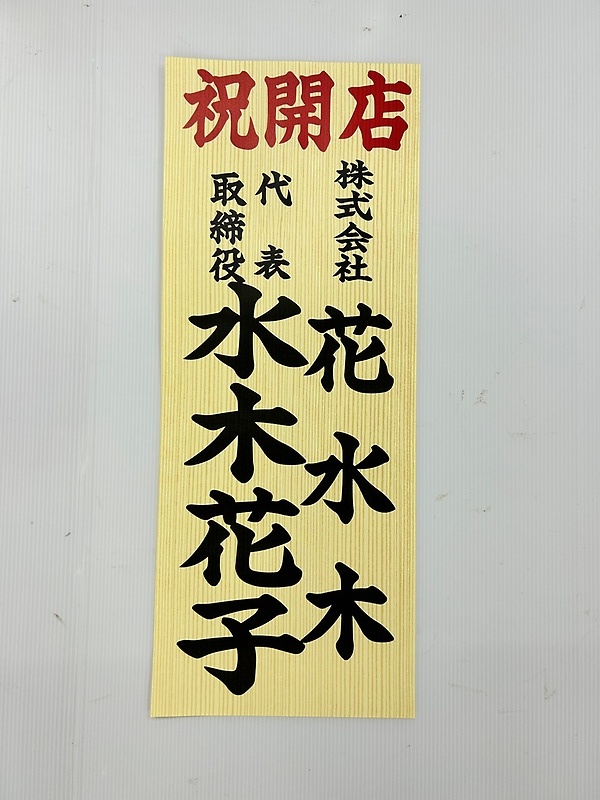 祝開店
株式会社
花水木
代表
取締役
水木花子